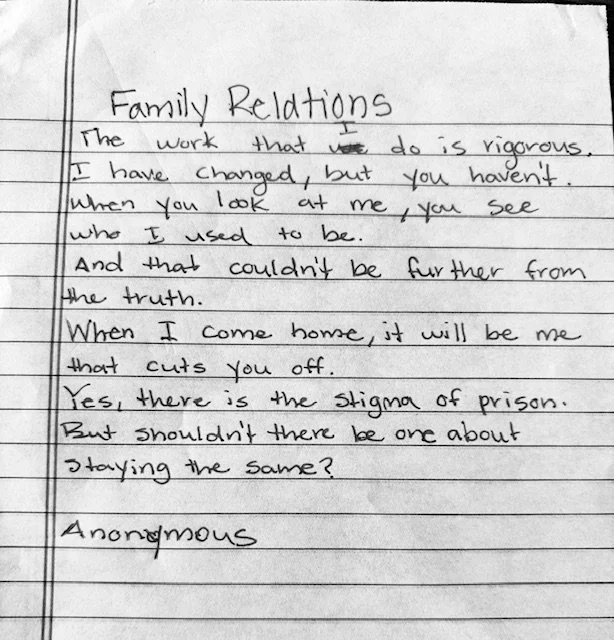 Family Relations
The work that I do is rigorous.
I have changed, but you haven't.
When you look at me, you see
who I used to be.
And that couldn't be further from
the truth.
When I come home, it will be me
that cuts you off.
Yes, there is the stigma of prison.
But shouldn't there be one about
staying the same?
Anonymous